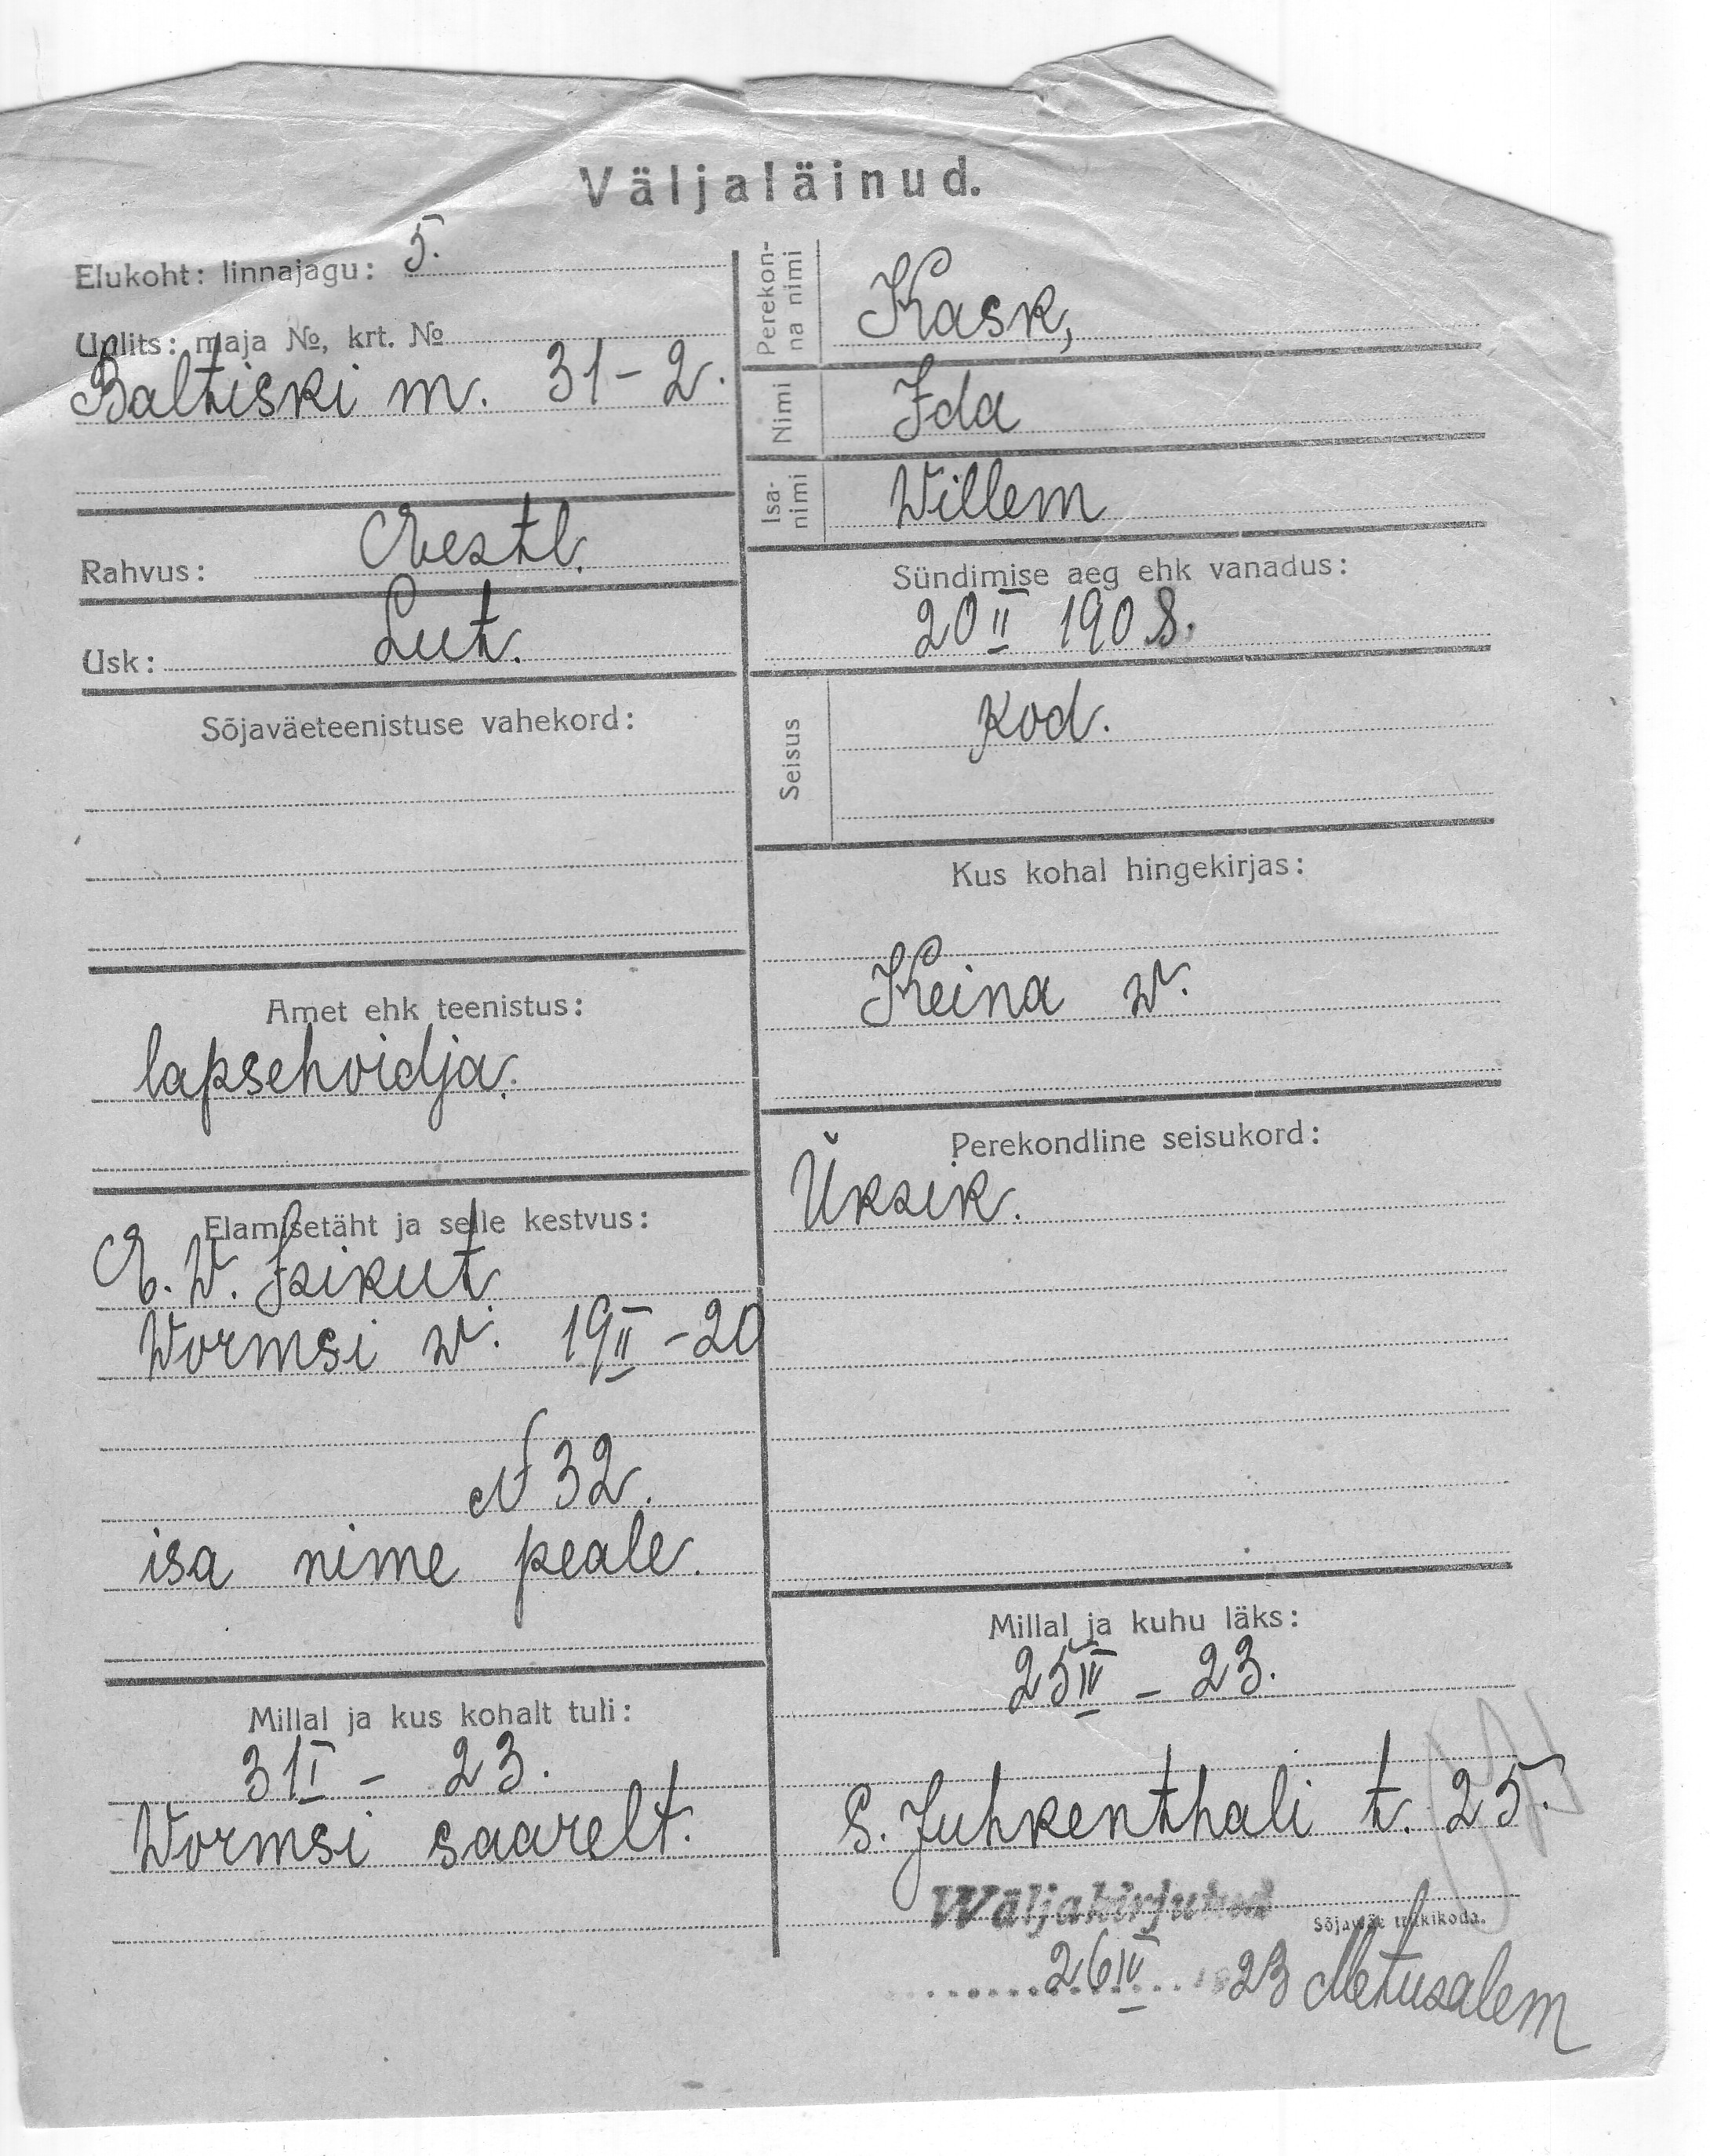 Väljaläinud.
Elukoht: linnajagu: 5.
Uulits: maja №, krt. №
Baltiski m. 31-2.
Rahvus: Eestl.
Usk: Lut.
Sõjaväeteenistuse vahekord:
Amet ehk teenistus:
lapsehoidja.
Elamisetäht ja selle kestvus:
E.W. Isikut.
Wormsi w. 19 II -20
N 32.
isa nime peale.
Millal ja kus kohalt tuli:
31 I - 23.
Wormsi saarelt.
Perekon-
na nimi
Kask,
Nimi
Ida
Isa-
nimi
Willem
Sündimise aeg ehk vanadus:
20 II 1908.
Seisus
Kod.
Kus kohal hingekirjas:
Keina w.
Perekondline seisukord:
Üksik.
Millal ja kuhu läks:
25 IV - 23.
S. Juhkenthali t. 25.
Wäljakirjutud
Sõjawäe trükikoda.
26 IV 1923 Metusalem